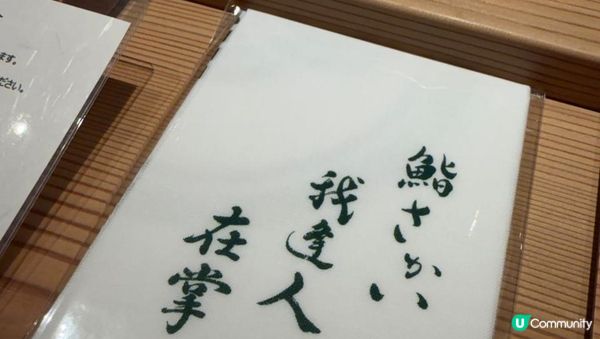 鮨さかい
我達人
在掌
ます。
ださい。
U Community